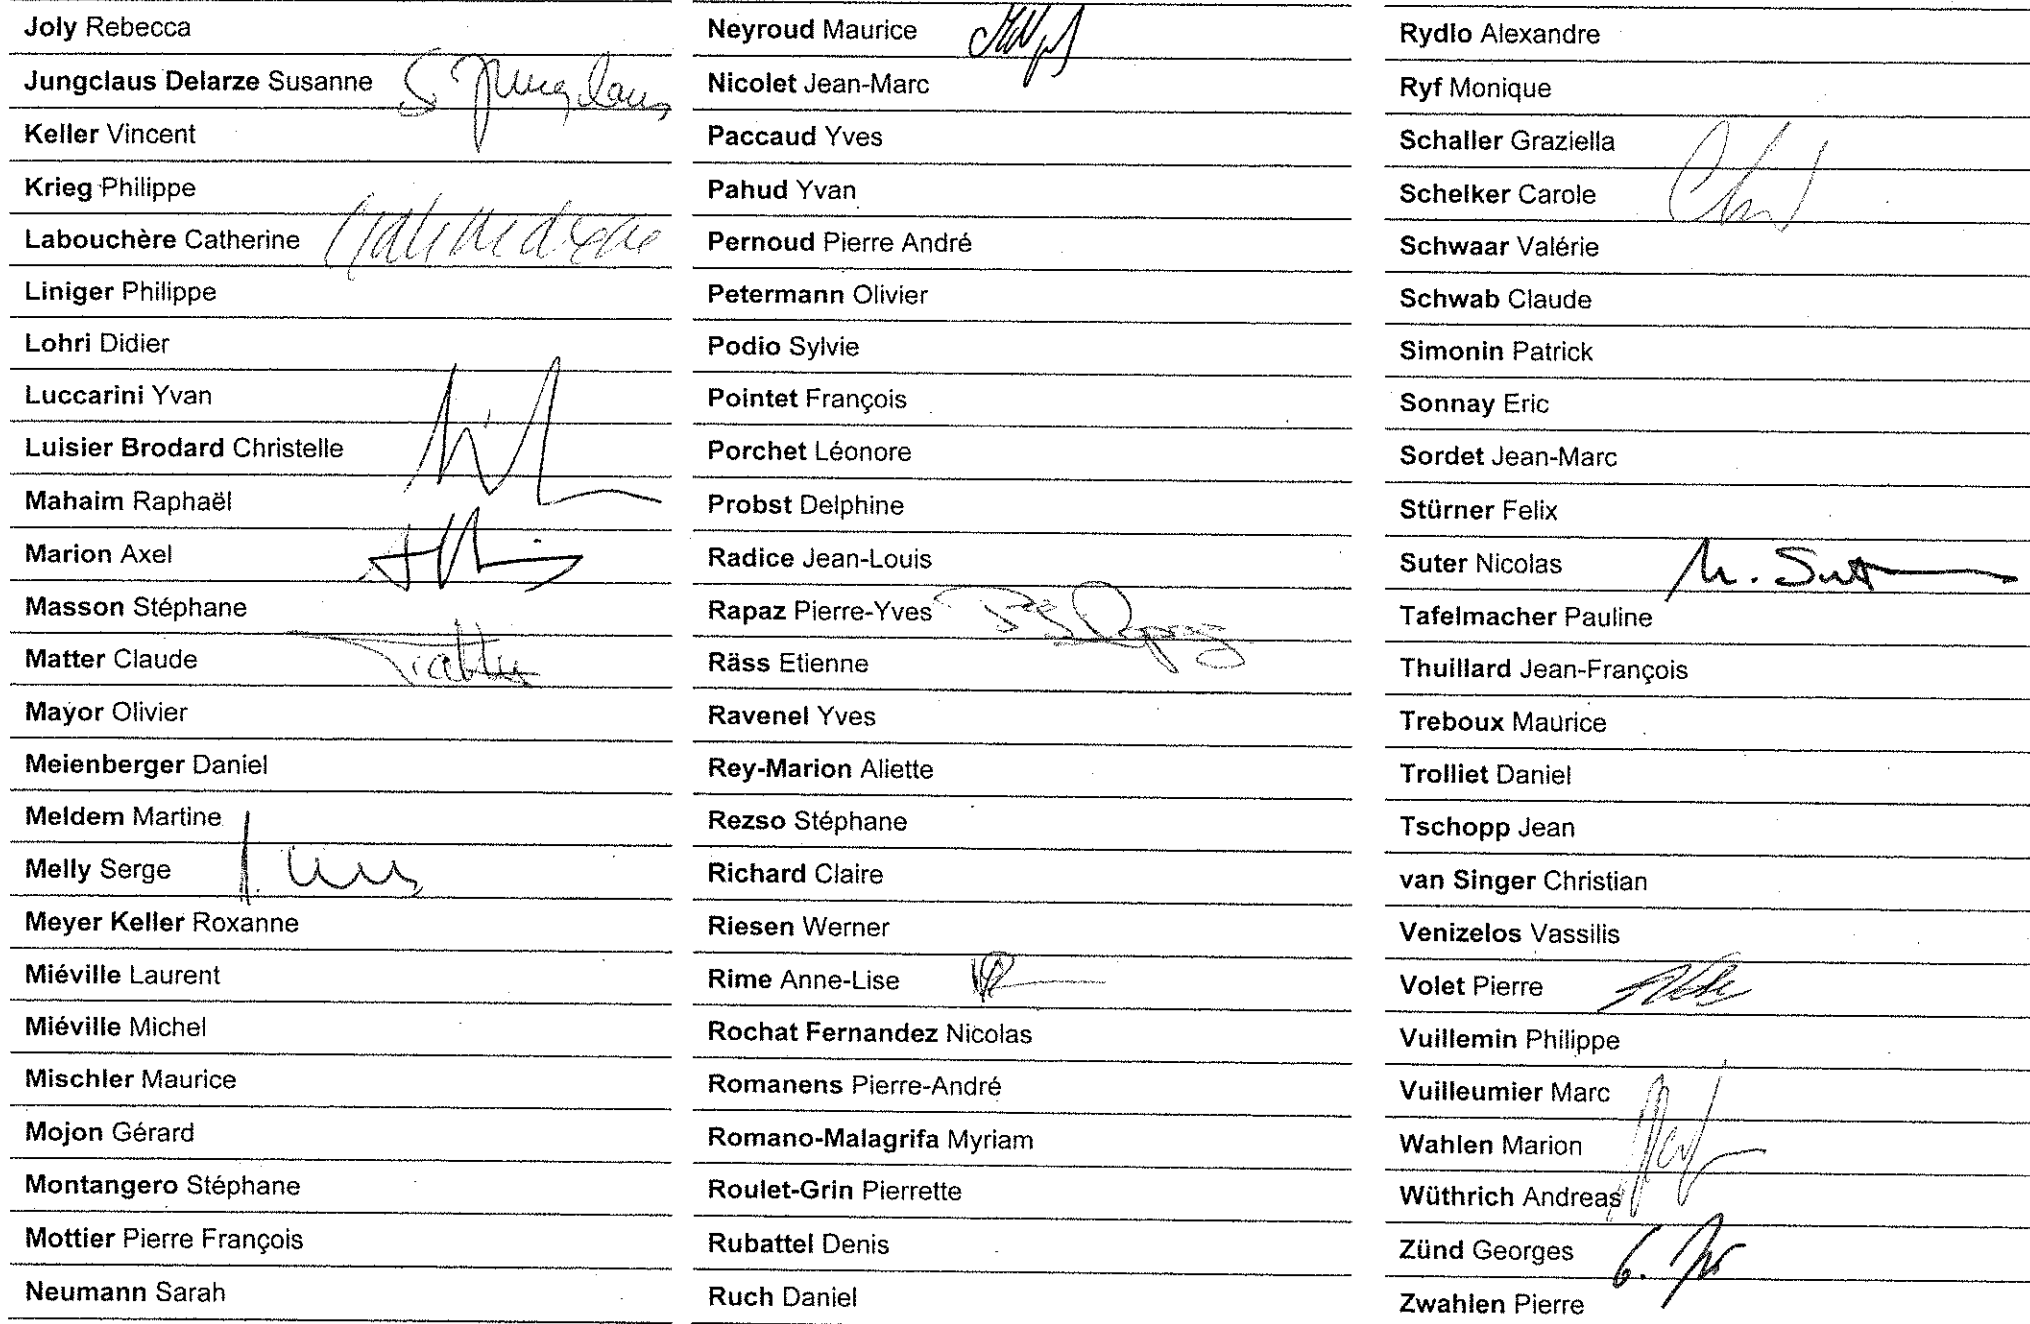 Joly Rebecca
Jungclaus Delarze Susanne S Jungclaus
Keller Vincent
Krieg Philippe
Labouchère Catherine
Liniger Philippe
Lohri Didier
Luccarini Yvan
Luisier Brodard Christelle
Mahaim Raphaël
Marion Axel
Masson Stéphane
Matter Claude
Mayor Olivier
Meienberger Daniel
Meldem Martine
Melly Serge
Meyer Keller Roxanne
Miéville Laurent
Miéville Michel
Mischler Maurice
Mojon Gérard
Montangero Stéphane
Mottier Pierre François
Neumann Sarah
Neyroud Maurice
Nicolet Jean-Marc
Paccaud Yves
Pahud Yvan
Pernoud Pierre André
Petermann Olivier
Podio Sylvie
Pointet François
Porchet Léonore
Probst Delphine
Radice Jean-Louis
Rapaz Pierre-Yves
Räss Etienne
Ravenel Yves
Rey-Marion Aliette
Rezso Stéphane
Richard Claire
Riesen Werner
Rime Anne-Lise
Rochat Fernandez Nicolas
Romanens Pierre-André
Romano-Malagrifa Myriam
Roulet-Grin Pierrette
Rubattel Denis
Ruch Daniel
Rydlo Alexandre
Ryf Monique
Schaller Graziella
Schelker Carole
Schwaar Valérie
Schwab Claude
Simonin Patrick
Sonnay Eric
Sordet Jean-Marc
Stürner Felix
Suter Nicolas N. Suter
Tafelmacher Pauline
Thuillard Jean-François
Treboux Maurice
Trolliet Daniel
Tschopp Jean
van Singer Christian
Venizelos Vassilis
Volet Pierre
Vuillemin Philippe
Vuilleumier Marc
Wahlen Marion
Wüthrich Andreas
Zünd Georges
Zwahlen Pierre